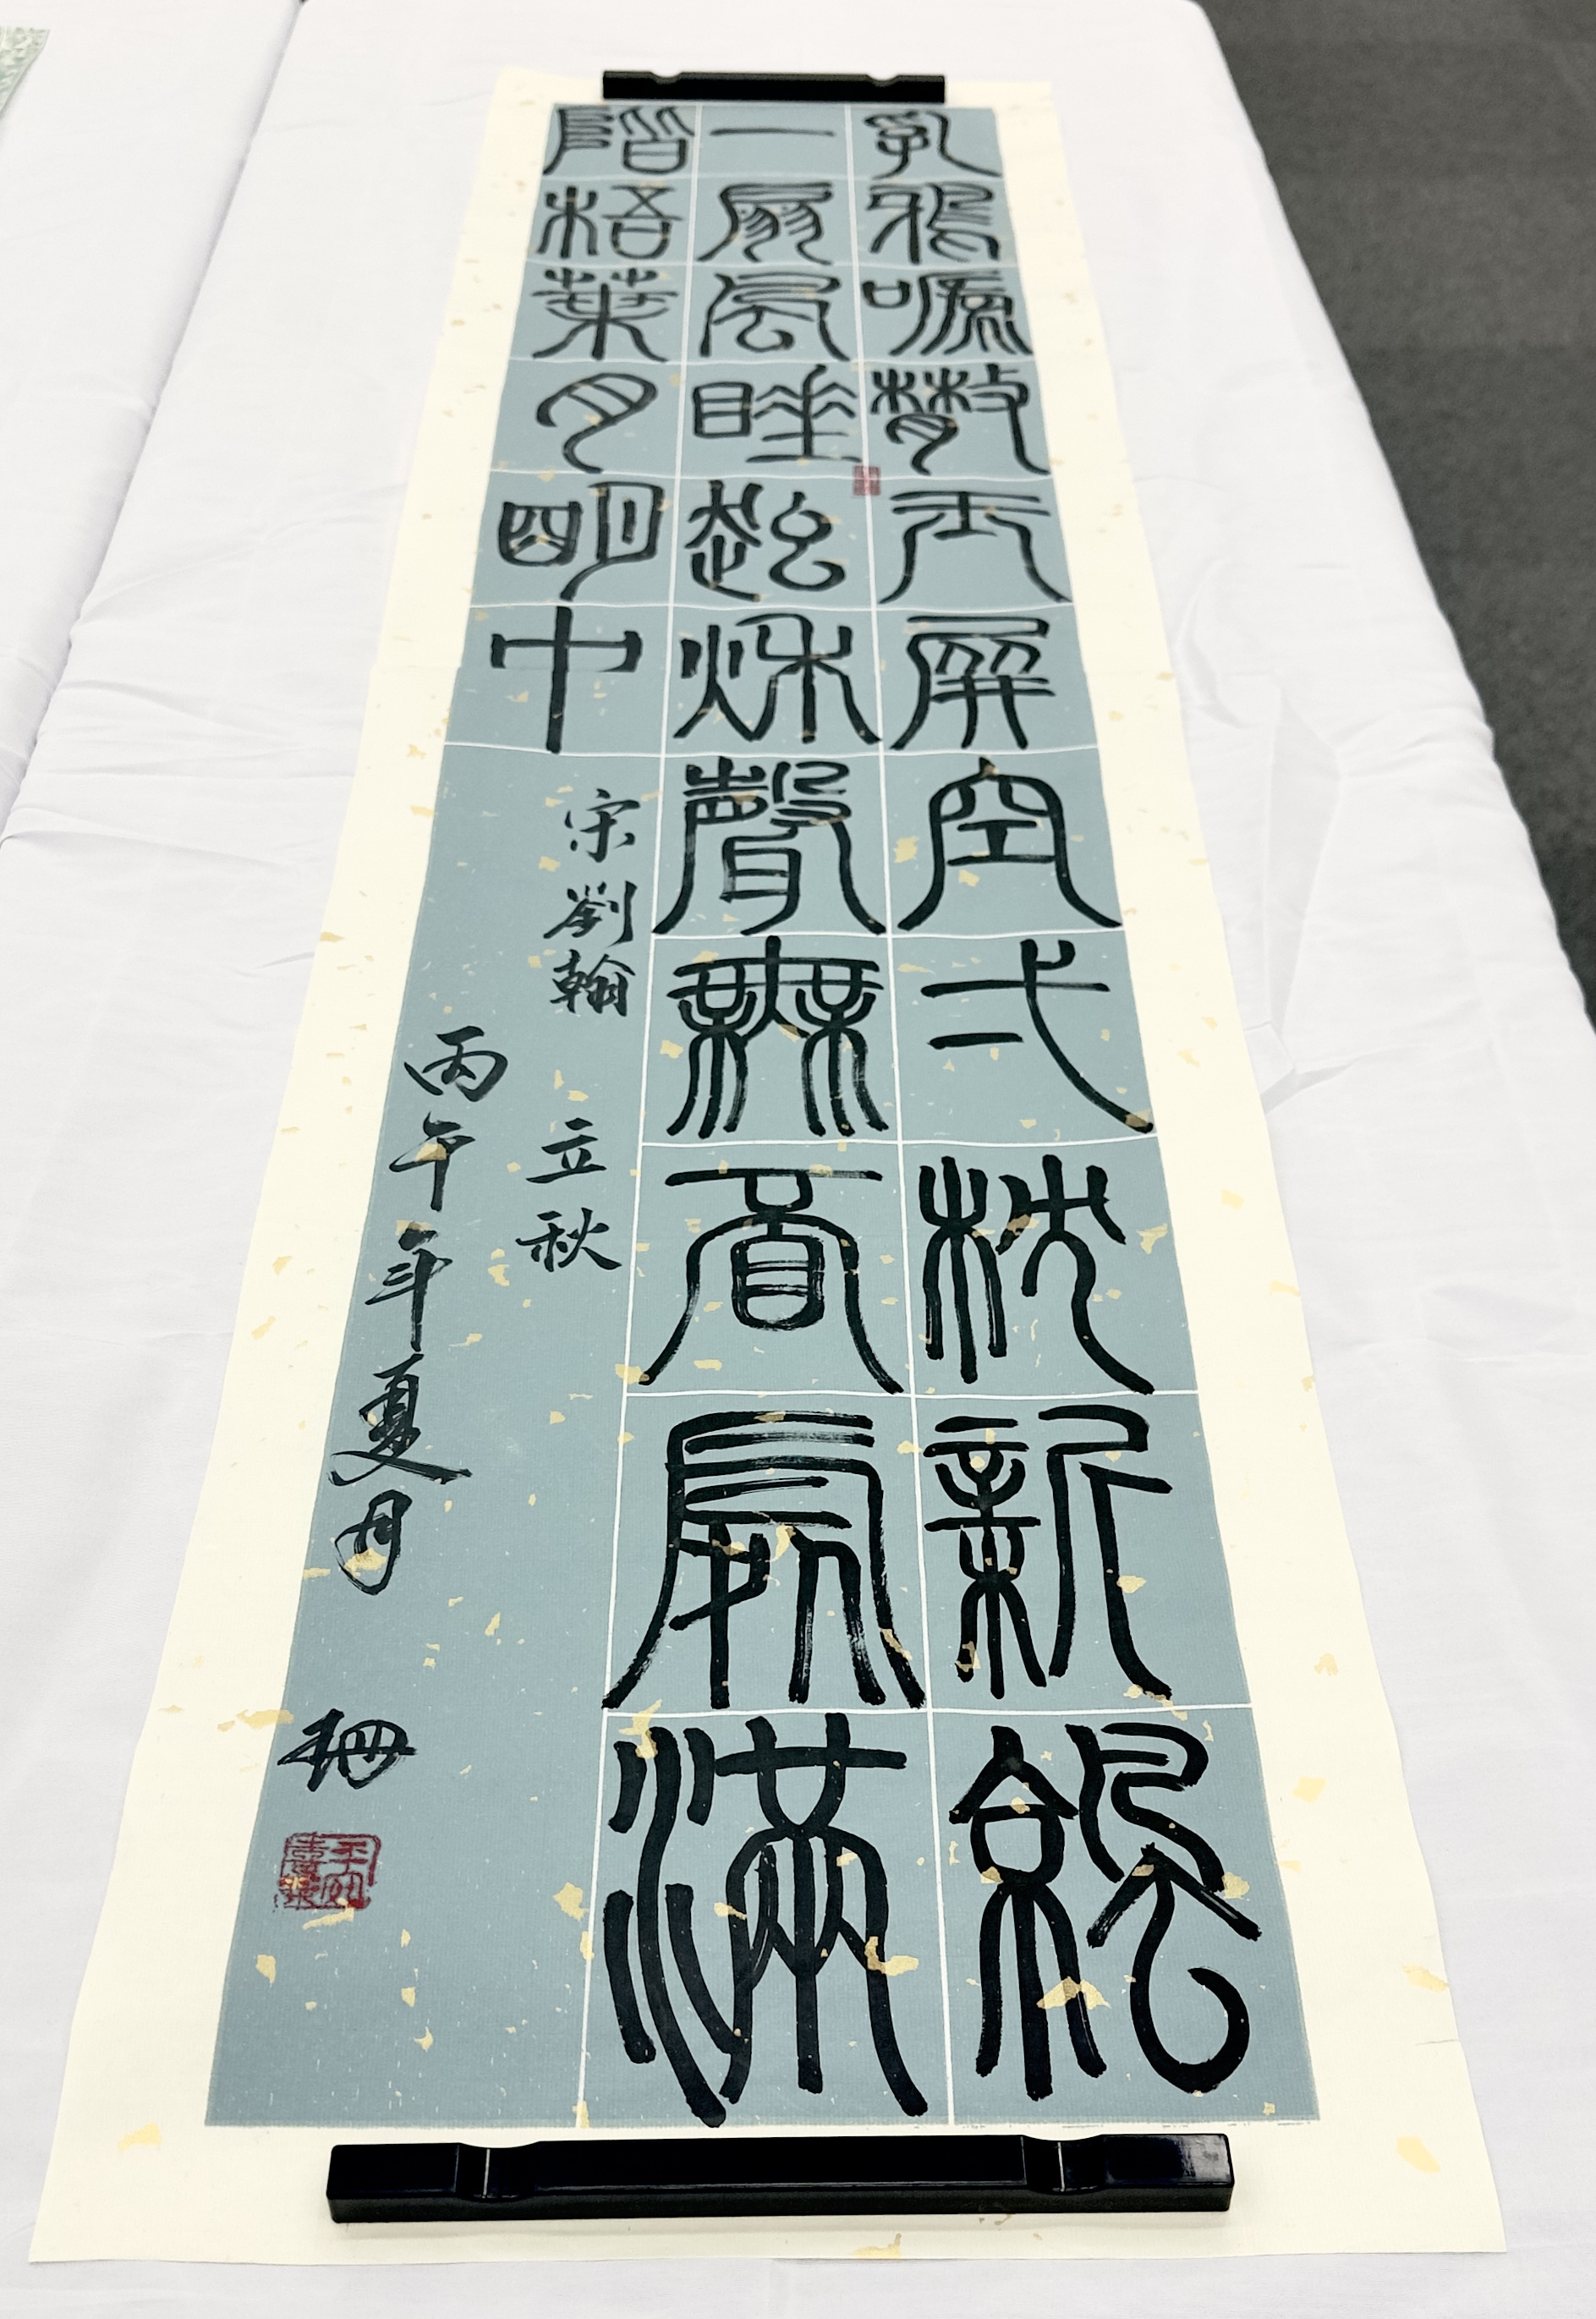 乳鴉嗁散玉屏空弌枕新涼
一扇風睡起秋聲無覓處滿
階梧葉月明中
宋劉翰 立秋
丙午年夏月 珊